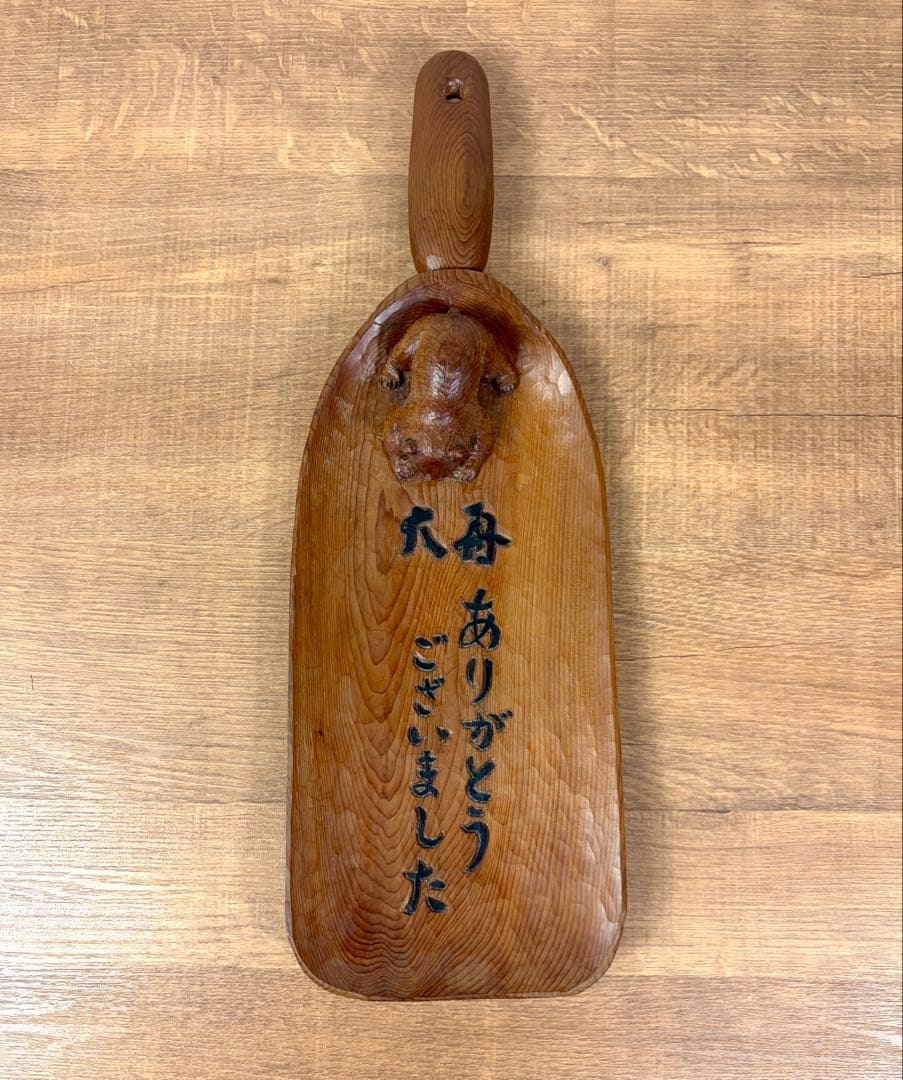 大舟
ありがとう
ございました